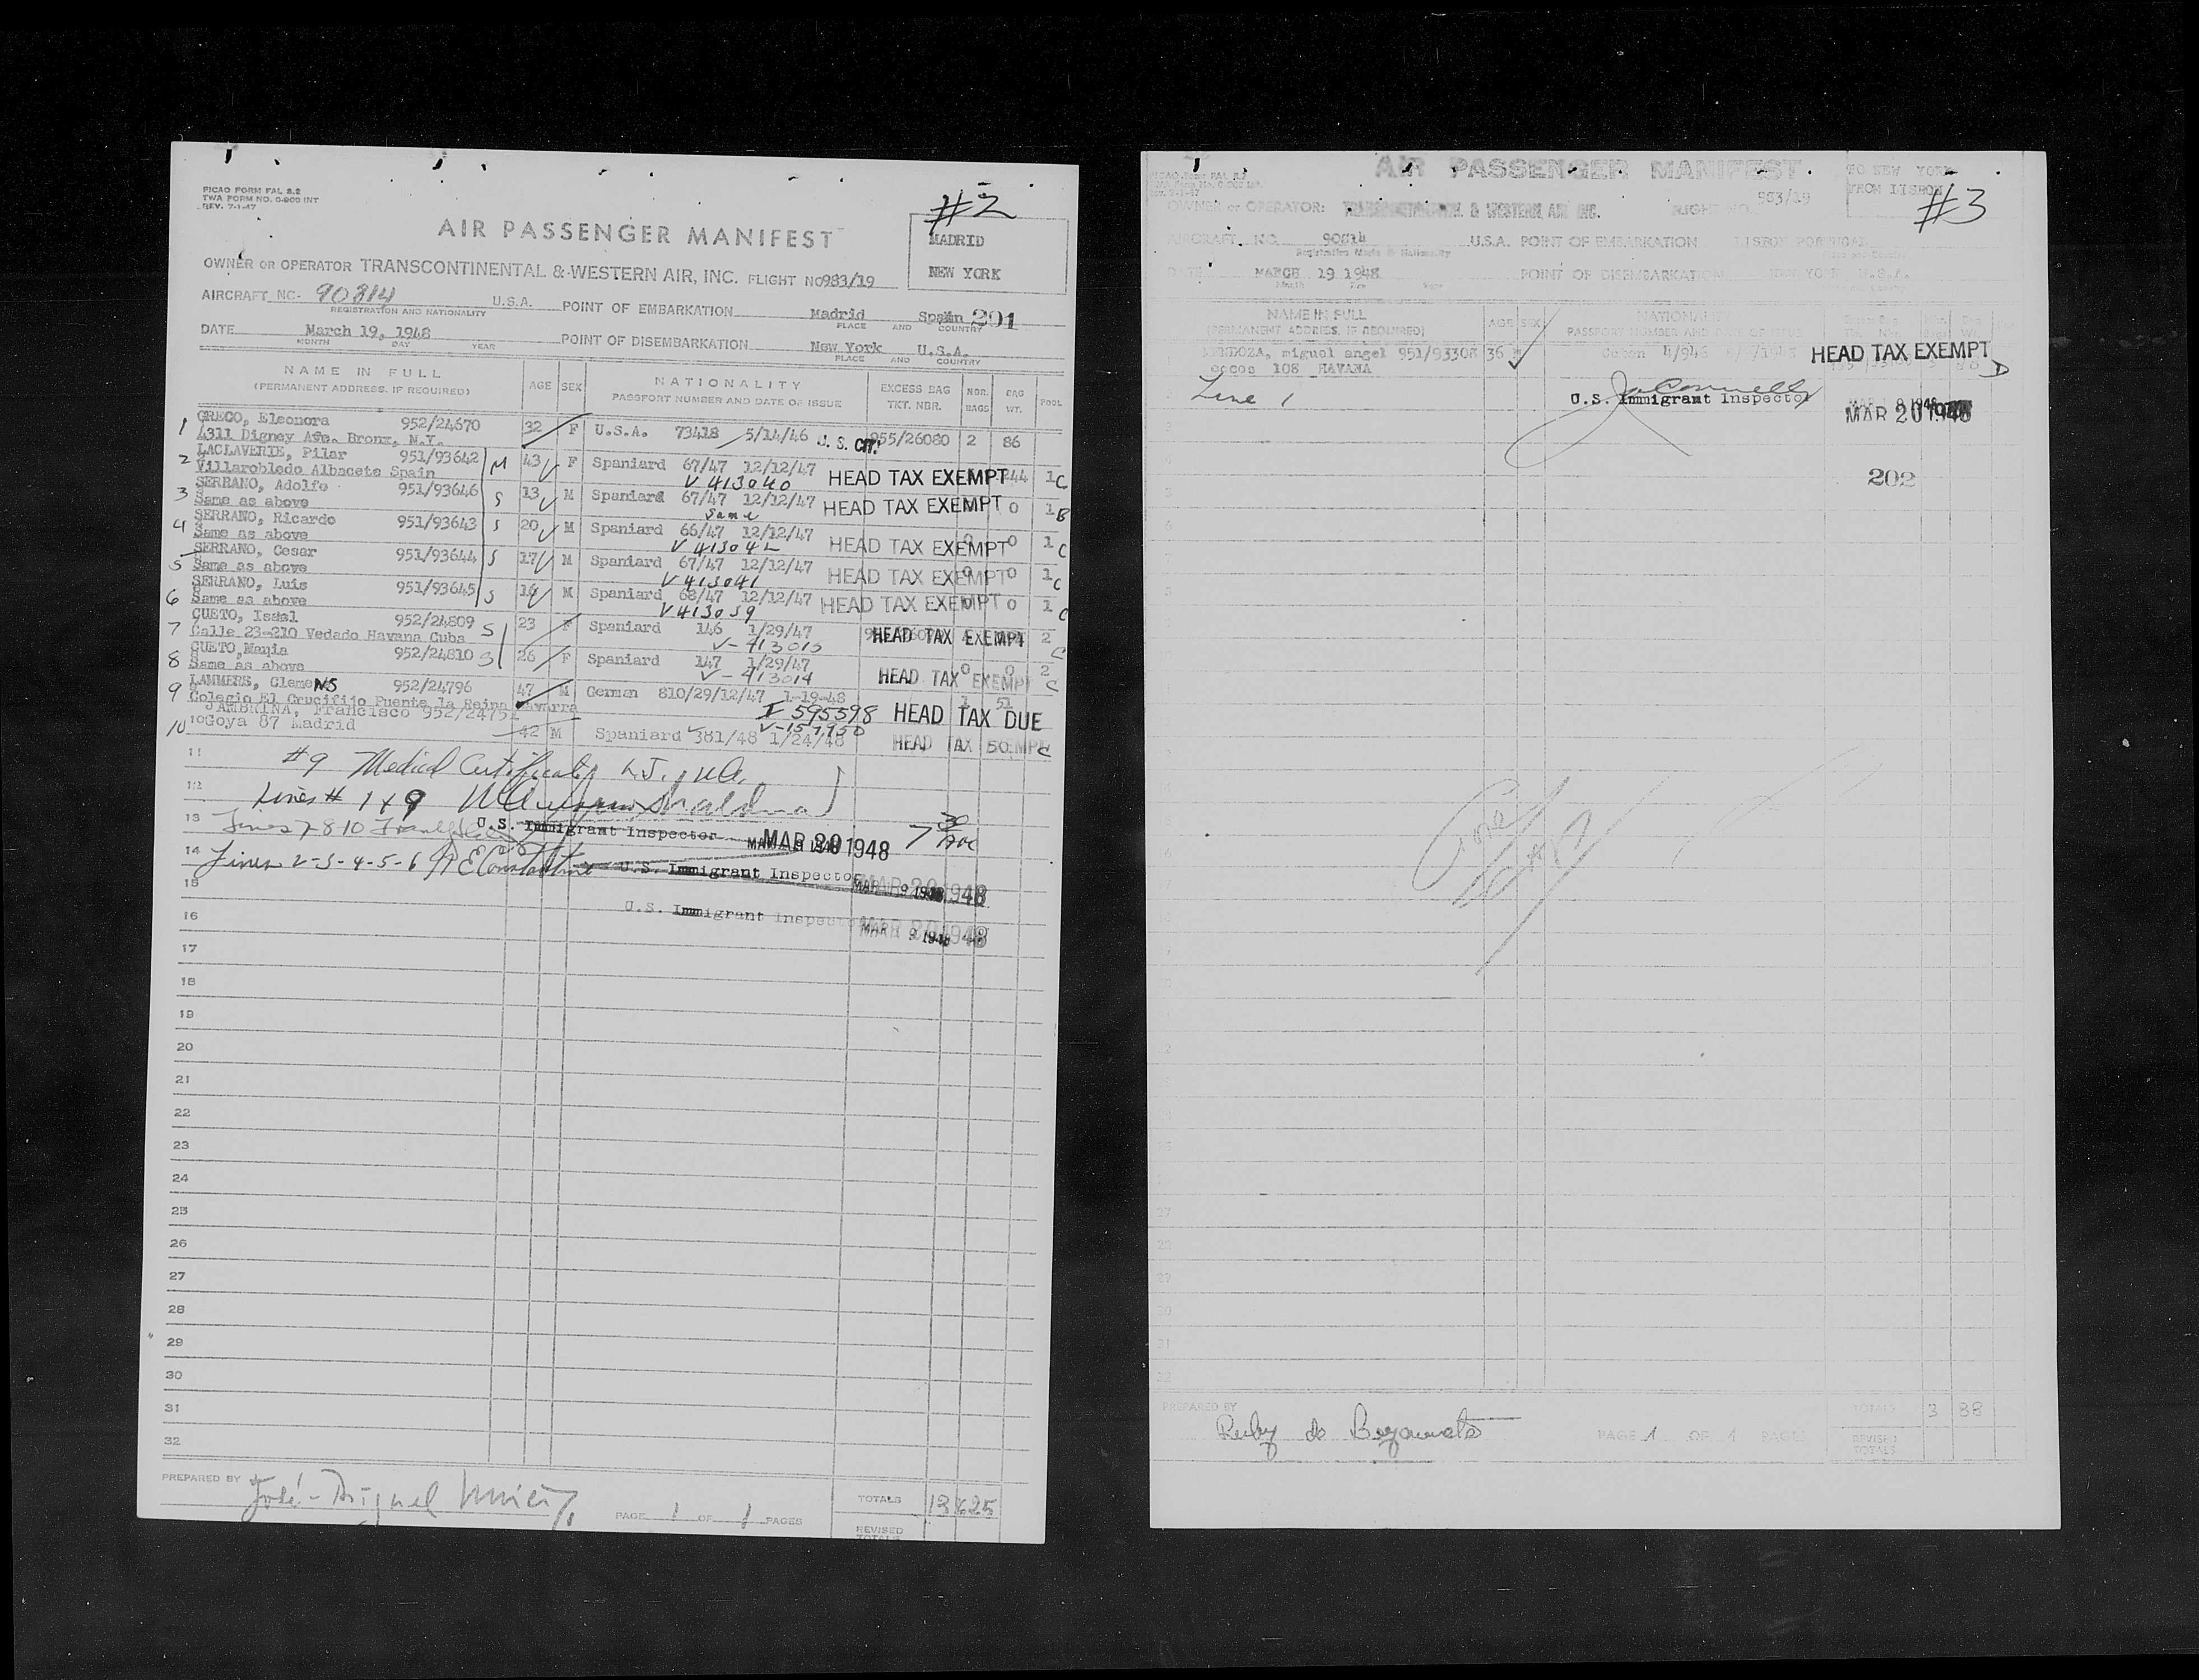 PICAO FORM FAL 2.2
TWA FORM NO. 0-900 INT
REV. 7-1-47
#2
AIR PASSENGER MANIFEST
MADRID
NEW YORK
OWNER OR OPERATOR TRANSCONTINENTAL & WESTERN AIR, INC. FLIGHT NO 983/19
AIRCRAFT NC- 90814 U.S.A. POINT OF EMBARKATION Madrid Spain 201
REGISTRATION AND NATIONALITY PLACE AND COUNTRY
DATE March 19, 1948 POINT OF DISEMBARKATION New York U.S.A.
MONTH DAY YEAR PLACE AND COUNTRY
NAME IN FULL
(PERMANENT ADDRESS, IF REQUIRED)
AGE SEX
NATIONALITY
PASSPORT NUMBER AND DATE OF ISSUE
EXCESS BAG
TKT. NBR.
NBR.
BAGS
BAG
WT.
POOL
1 GRECO, Eleonora 952/24670 32 F U.S.A. 73418 5/14/46 U.S. CIT. 955/26080 2 86
4311 Digney Ave. Bronx, N.Y.
2 LACLAVERIE, Pilar 951/93642 M 43 F Spaniard 67/47 12/12/47 HEAD TAX EXEMPT 244 1 C
Villarobledo Albacete Spain V 413040
3 SERRANO, Adolfo 951/93646 S 13 M Spaniard 67/47 12/12/47 HEAD TAX EXEMPT 0 1 B
Same as above Same
4 SERRANO, Ricardo 951/93643 S 20 M Spaniard 66/47 12/12/47 HEAD TAX EXEMPT 0 1 C
Same as above V 413042
5 SERRANO, Cesar 951/93644 S 17 M Spaniard 67/47 12/12/47 HEAD TAX EXEMPT 0 1 C
Same as above V 413041
6 SERRANO, Luis 951/93645 S M Spaniard 68/47 12/12/47 HEAD TAX EXEMPT 0 1 C
Same as above V 413039
7 CUETO, Isabal 952/24809 S 23 F Spaniard 146 1/29/47 HEAD TAX EXEMPT 2 C
Calle 23-210 Vedado Havana Cuba V-413013
8 CUETO, Maria 952/24810 S 26 F Spaniard 147 1/29/47 HEAD TAX EXEMPT 0 0 2 C
Same as above V-413014
9 LAMMERS, ClemeNS 952/24796 47 M German 810/29/12/47 1-19-48 1 51
Colegio El Crucifijo Puente la Reina Navarra I 595398 HEAD TAX DUE
10 JAMBRINA, Francisco 952/2475 42 M Spaniard 381/48 1/24/48 HEAD TAX EXEMPT 50 C
10 Goya 87 Madrid V-157950
11
#9 Medical Certificate
12
Lines # 1 & 9
13
Lines 7-8-10
U.S. Immigrant Inspector MAR 20 1948
14
Lines 2-3-4-5-6
U.S. Immigrant Inspector MAR 20 1948
15
U.S. Immigrant Inspector MAR 20 1948
16
17
18
19
20
21
22
23
24
25
26
27
28
29
30
31
32
PREPARED BY José-Miguel
PAGE 1 OF 1 PAGES
TOTALS 13 625
REVISED
TOTALS
AIR PASSENGER MANIFEST
TO NEW YORK
FROM LISBON
#3
OWNER or OPERATOR: & WESTERN AIR INC. FLIGHT NO. 983/19
AIRCRAFT NO. 90814 U.S.A. POINT OF EMBARKATION LISBON PORTUGAL
Registration Marks & Nationality
DATE MARCH 19 1948 POINT OF DISEMBARKATION NEW YORK U.S.A.
NAME IN FULL
(PERMANENT ADDRESS, IF REQUIRED)
AGE SEX
NATIONALITY
PASSPORT NUMBER AND OF ISSUE
MENDOZA, miguel angel 951/93308 36 M Cuban 4/946 HEAD TAX EXEMPT D
cocos 108 HAVANA
Line 1
U.S. Immigrant Inspector
MAR 20 1948
202
PREPARED BY
Ruby de
PAGE 1 OF 1 PAGES
TOTALS 3 88
REVISED
TOTALS